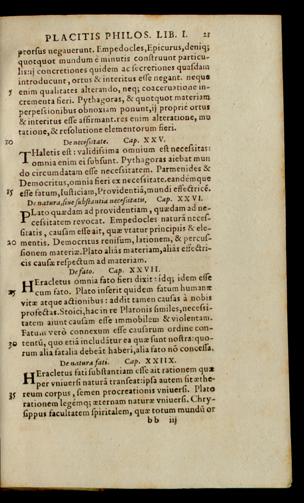 PLACITIS PHILOS. LIB. I. 21
prorsus negauerunt. Empedocles, Epicurus, deniq;
quotquot mundum è minutis construunt particu-
lis: ij concretiones quidem ac secretiones quasdam
introducunt, ortus & interitus esse negant. neque
5 enim qualitates alterando, neq; coaceruatione in-
crementa fieri. Pythagoras, & quotquot materiam
perpessionibus obnoxiam ponunt, ij propriè ortus
& interitus esse affirmant. res enim alteratione, mu
tatione, & resolutione elementorum fieri.
10 De necessitate. Cap. XXV.
THaletis est: validissima omnium est necessitas:
omnia enim ei subsunt. Pythagoras aiebat mun
do circumdatam esse necessitatem. Parmenides &
Democritus, omnia fieri ex necessitate. eandémque
15 esse fatum, Iustitiam, Prouidentiã, mundi effectricẽ.
De natura, siue substantia necessitatis, Cap. XXVI.
PLato quædam ad prouidentiam, quædam ad ne-
cessitatem reuocat. Empedocles naturã necessi-
sitatis, causam esse ait, quæ vtatur principiis & ele-
20 mentis. Democritus renisum, lationem, & percus-
sionem materiæ. Plato aliàs materiam, aliàs effectri-
cis causæ respectum ad materiam.
De fato. Cap. XXVII.
HEracletus omnia fato fieri dixit: idq; idem esse
25 cum fato. Plato inserit quidem fatum humanæ
vitæ atque actionibus: addit tamen causas à nobis
profectas. Stoici, hac in re Platonis similes, necessi-
tatem aiunt causam esse immobilem & violentam.
Fatum verò connexum esse causarum ordine con-
30 tentũ, quo etiã includãtur ea quæ sunt nostra: quo-
rum alia fatalia debeãt haberi, alia fato nõ concessa.
De natura fati. Cap. XXIIX.
HEracletus fati substantiam esse ait rationem quæ
per vniuersi naturã transeat: ipsã autem sit æthe-
35 reum corpus, semen procreationis vniuersi. Plato
rationem legémq; æternam naturæ vniuersi. Chry-
sippus facultatem spiritalem, quæ totum mundũ or
bb iij